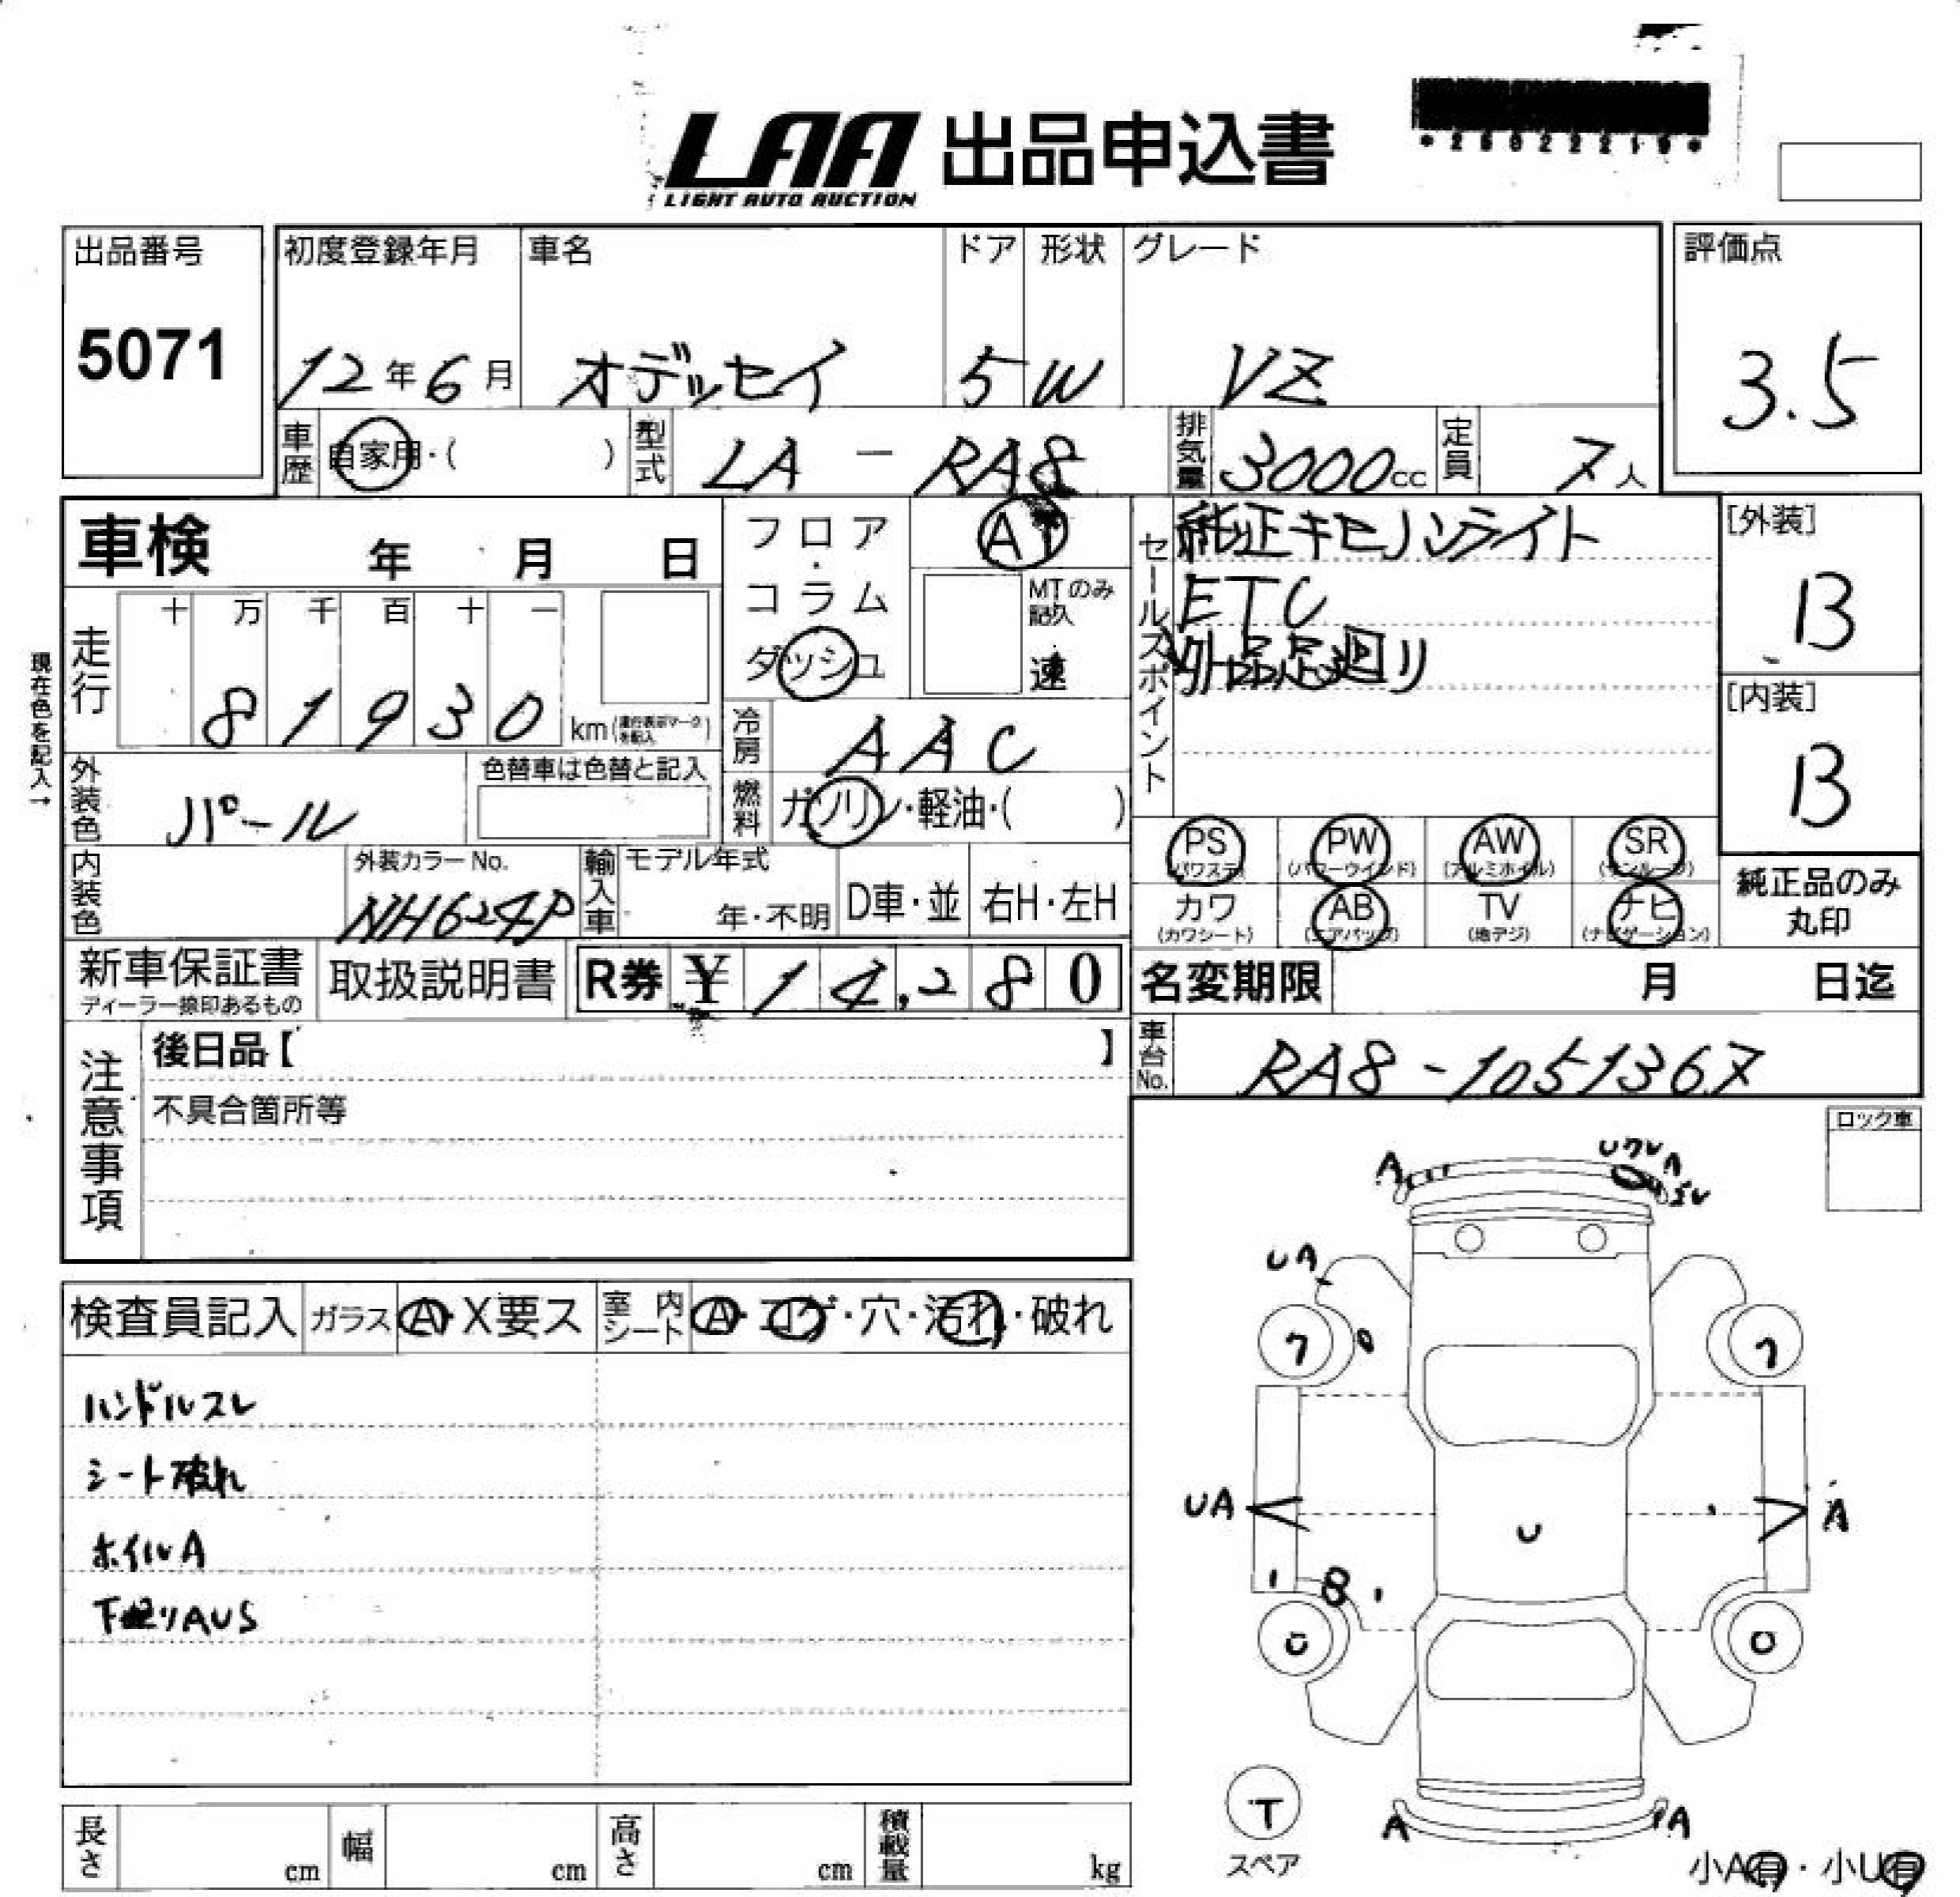 LAA 出品申込書
LIGHT AUTO AUCTION
出品番号 初度登録年月 車名 ドア 形状 グレード 評価点
5071 12年6月 オデッセイ 5 W VZ 3.5
車歴 自家用・( ) 型式 LA - RA8 排気量 3000cc 定員 7人
車検 年 月 日
フロア・コラム ダッシュ
AT
MTのみ記入 速
セールスポイント
純正キセノンライト
ETC
外品足廻り
[外装]
B
[内装]
B
現在色を記入→
走行 十 万 千 百 十 一
8 1 9 3 0 km(走行表示マークを記入)
冷房 AAC
外装色 パール 色替車は色替と記入
燃料 ガソリン・軽油・( )
PS (パワステ) PW (パワーウインド) AW (アルミホイル) SR (サンルーフ)
カワ (カワシート) AB (エアバッグ) TV (地デジ) ナビ (ナビゲーション)
純正品のみ丸印
内装色 外装カラーNo. NH624P 輸入車 モデル年式 年・不明 D車・並 右H・左H
新車保証書 ディーラー捺印あるもの 取扱説明書 R券 ¥ 14,280
名変期限 月 日迄
車台No. RA8-1051367
注意事項
後日品【 】
不具合箇所等
ロック車
検査員記入 ガラス A・X要ス 室内シート A・コゲ・穴・汚れ・破れ
ハンドルスレ
シート破れ
ホイルA
下廻りAUS
A
UA
ワ ワ
UA A
U
B
T
スペア
A A
小A有・小U有
長さ cm 幅 cm 高さ cm 積載量 kg